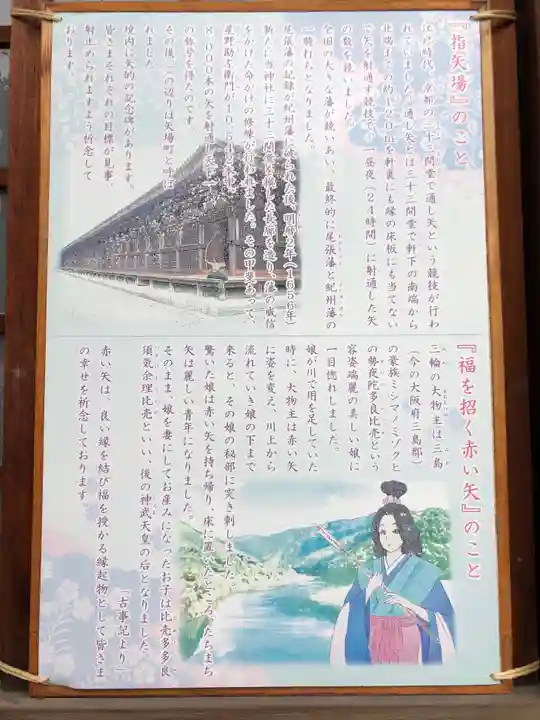 『指矢場』のこと
江戸時代、京都の三十三間堂で通し矢という競技が行わ
れていました。通し矢とは三十三間堂で軒下の南端から
北端までの約120mを軒裏にも縁の床板にも当てない
で矢を射通す競技で、一昼夜(24時間)に射通した矢
の数を競いました。
全国の大きな藩が競いあい、最終的に尾張藩と紀州藩の
一騎打ちとなりました。
尾張藩の記録が紀州藩に破られた後、明暦2年(1656年)
新たに当神社に三十三間堂を模した長廊を造り、藩の威信
をかけた命がけの修練が行われました。その甲斐あって、
星野勘左衛門が10,542本中
8,000本の矢を射通し天下一
の称号を得たのです。
その後、この辺りは矢場町と呼ば
れました。
境内に矢的の記念碑があります。
皆さまそれぞれの目標が見事、
射止められますよう祈念して
おります。
『福を招く赤い矢』のこと
三輪の大物主は三島
(今の大阪府三島郡)
の豪族ミシマノミゾクヒ
の勢夜陀多良比売という
容姿端麗の美しい娘に
一目惚れしました。
娘が川で用を足していた
時に、大物主は赤い矢
に姿を変え、川上から
流れていき娘の下まで
来ると、その娘の秘部に突き刺しました
驚いた娘は赤い矢を持ち帰り、床に置いたところ、たちまち
矢は麗しい青年になりました。
そのまま、娘を妻にしてお産みになったお子は比売多多良
須気余理比売といい、後の神武天皇の后となりました。
「古事記より」
赤い矢は、良い縁を結び福を授かる縁起物として皆さま
の幸せを祈念しております。